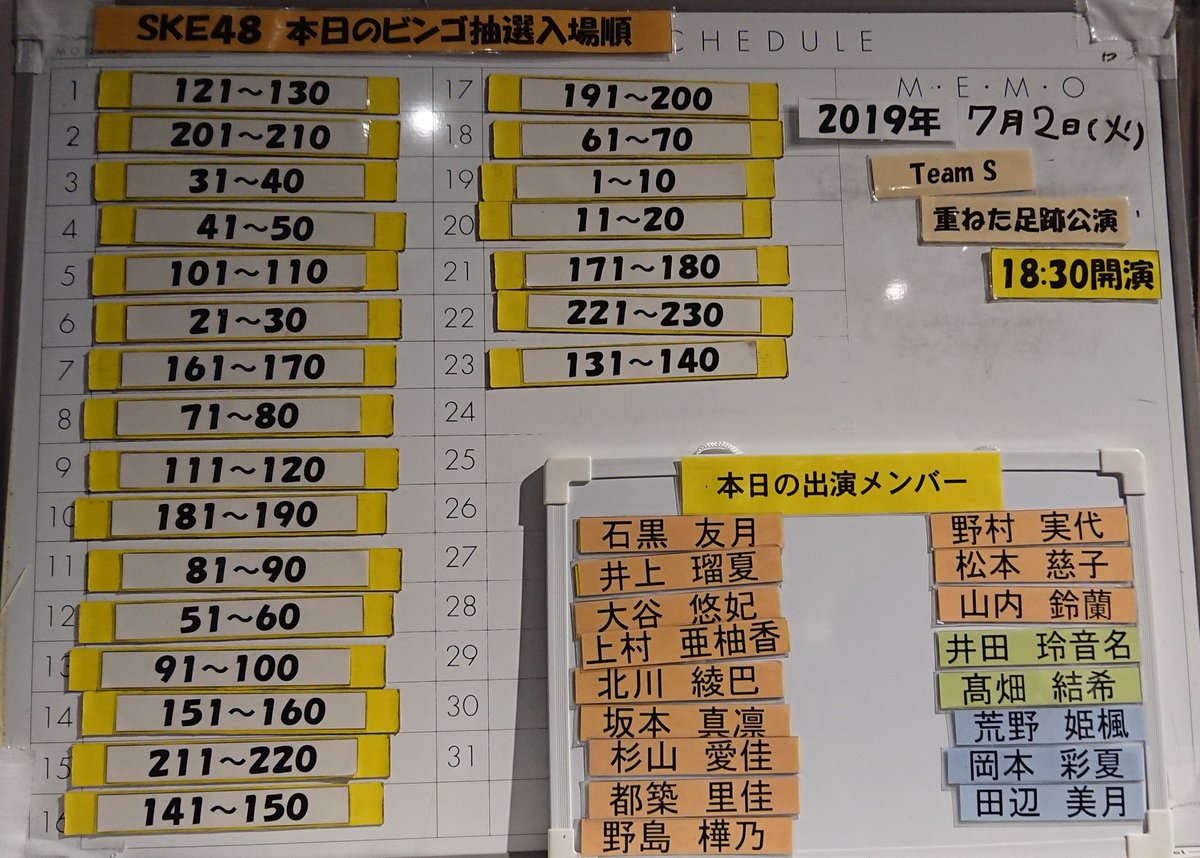 SKE48 本日のビンゴ抽選入場順
CHEDULE
1 121～130
2 201～210
3 31～40
4 41～50
5 101～110
6 21～30
7 161～170
8 71～80
9 111～120
10 181～190
11 81～90
12 51～60
13 91～100
14 151～160
15 211～220
16 141～150
17 191～200
18 61～70
19 1～10
20 11～20
21 171～180
22 221～230
23 131～140
24
25
26
27
28
29
30
31
M・E・M・O
2019年 7月2日(火)
Team S
重ねた足跡公演
18:30開演
本日の出演メンバー
石黒 友月
井上 瑠夏
大谷 悠妃
上村 亜柚香
北川 綾巴
坂本 真凛
杉山 愛佳
都築 里佳
野島 樺乃
野村 実代
松本 慈子
山内 鈴蘭
井田 玲音名
髙畑 結希
荒野 姫楓
岡本 彩夏
田辺 美月